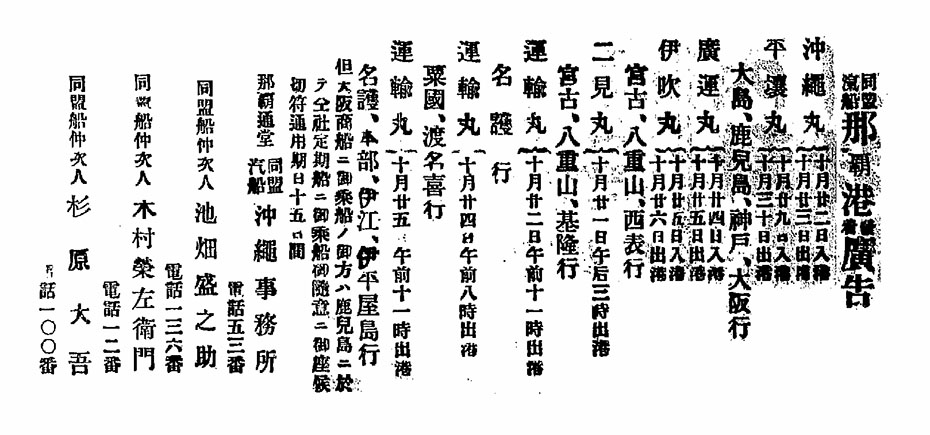 同盟汽船那覇港發着廣告
沖繩丸 十月廿二日入港 十月廿三日出港
平壤丸 十月廿九日入港 十月三十日出港
大島、鹿兒島、神戸、大阪行
廣運丸 十月廿四日入港 十月廿五日出港
伊吹丸 十月廿五日入港 十月廿六日出港
宮古、八重山、西表行
二見丸 十月廿一日午后三時出港
宮古、八重山、基隆行
運輸丸 十月廿二日午前十一時出港
名護行
運輸丸 十月廿四日午前八時出港
粟國、渡名喜行
運輸丸 十月廿五 午前十一時出港
名護、本部、伊江、伊平屋島行
但大阪商船ニ御乘船ノ御方ハ鹿兒島ニ於
テ仝社定期船ニ御乘船御隨意ニ御座候
切符通用期日十五日間
那覇通堂 同盟汽船 沖繩事務所
電話五三番
同盟船仲次人 池畑盛之助
電話一三六番
同盟船仲次人 木村榮左衛門
電話一二番
同盟船仲次人 杉原大吾
話一〇〇番